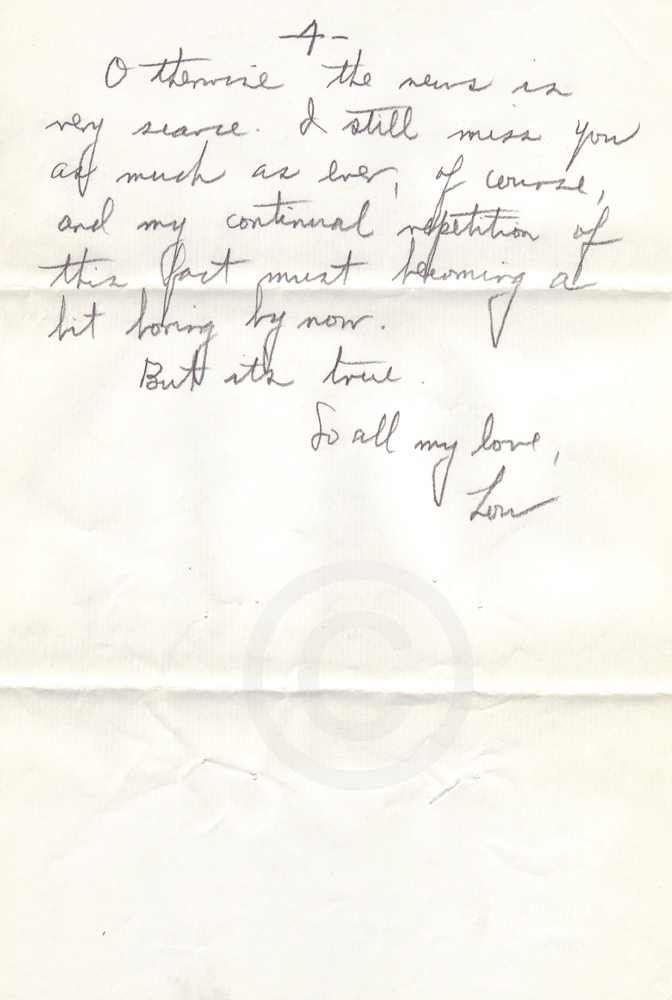 -4-
Otherwise the news is
very scarce. I still miss you
as much as ever, of course,
and my continual repetition of
this fact must becoming a
bit boring by now.
But its true.
So all my love,
Lou
©